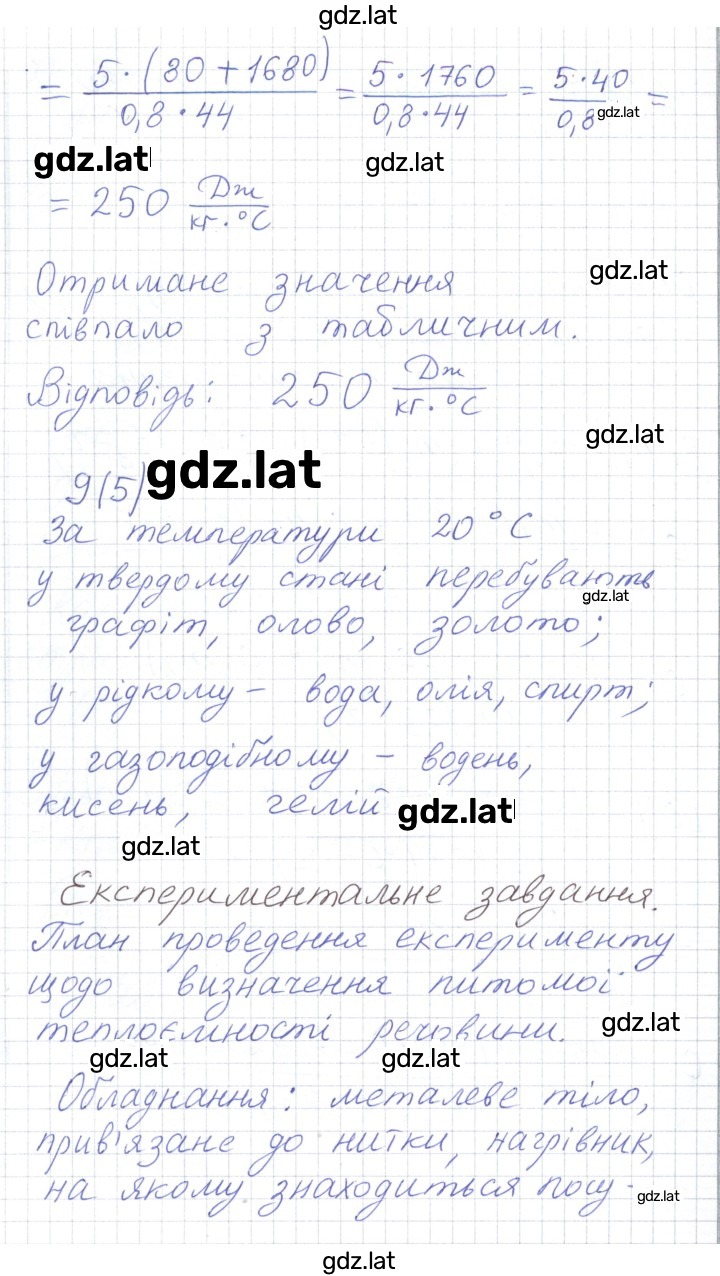 gdz.lat
= 5·(80+1680)/0,8·44 = 5·1760/0,8·44 = 5·40/0,8 =
gdz.lat
gdz.lat gdz.lat
= 250 Дж/кг·°C
Отримане значення gdz.lat
співпало з табличним.
Відповідь: 250 Дж/кг·°C
gdz.lat
9(5) gdz.lat
За температури 20°C
у твердому стані перебувають
gdz.lat
графіт, олово, золото;
у рідкому – вода, олія, спирт;
у газоподібному – водень,
кисень, гелій gdz.lat
gdz.lat
Експериментальне завдання.
План проведення експерименту
щодо визначення питомої
теплоємності речовини. gdz.lat
gdz.lat gdz.lat
Обладнання: металеве тіло,
прив'язане до нитки, нагрівник,
на якому знаходиться посу- gdz.lat
gdz.lat